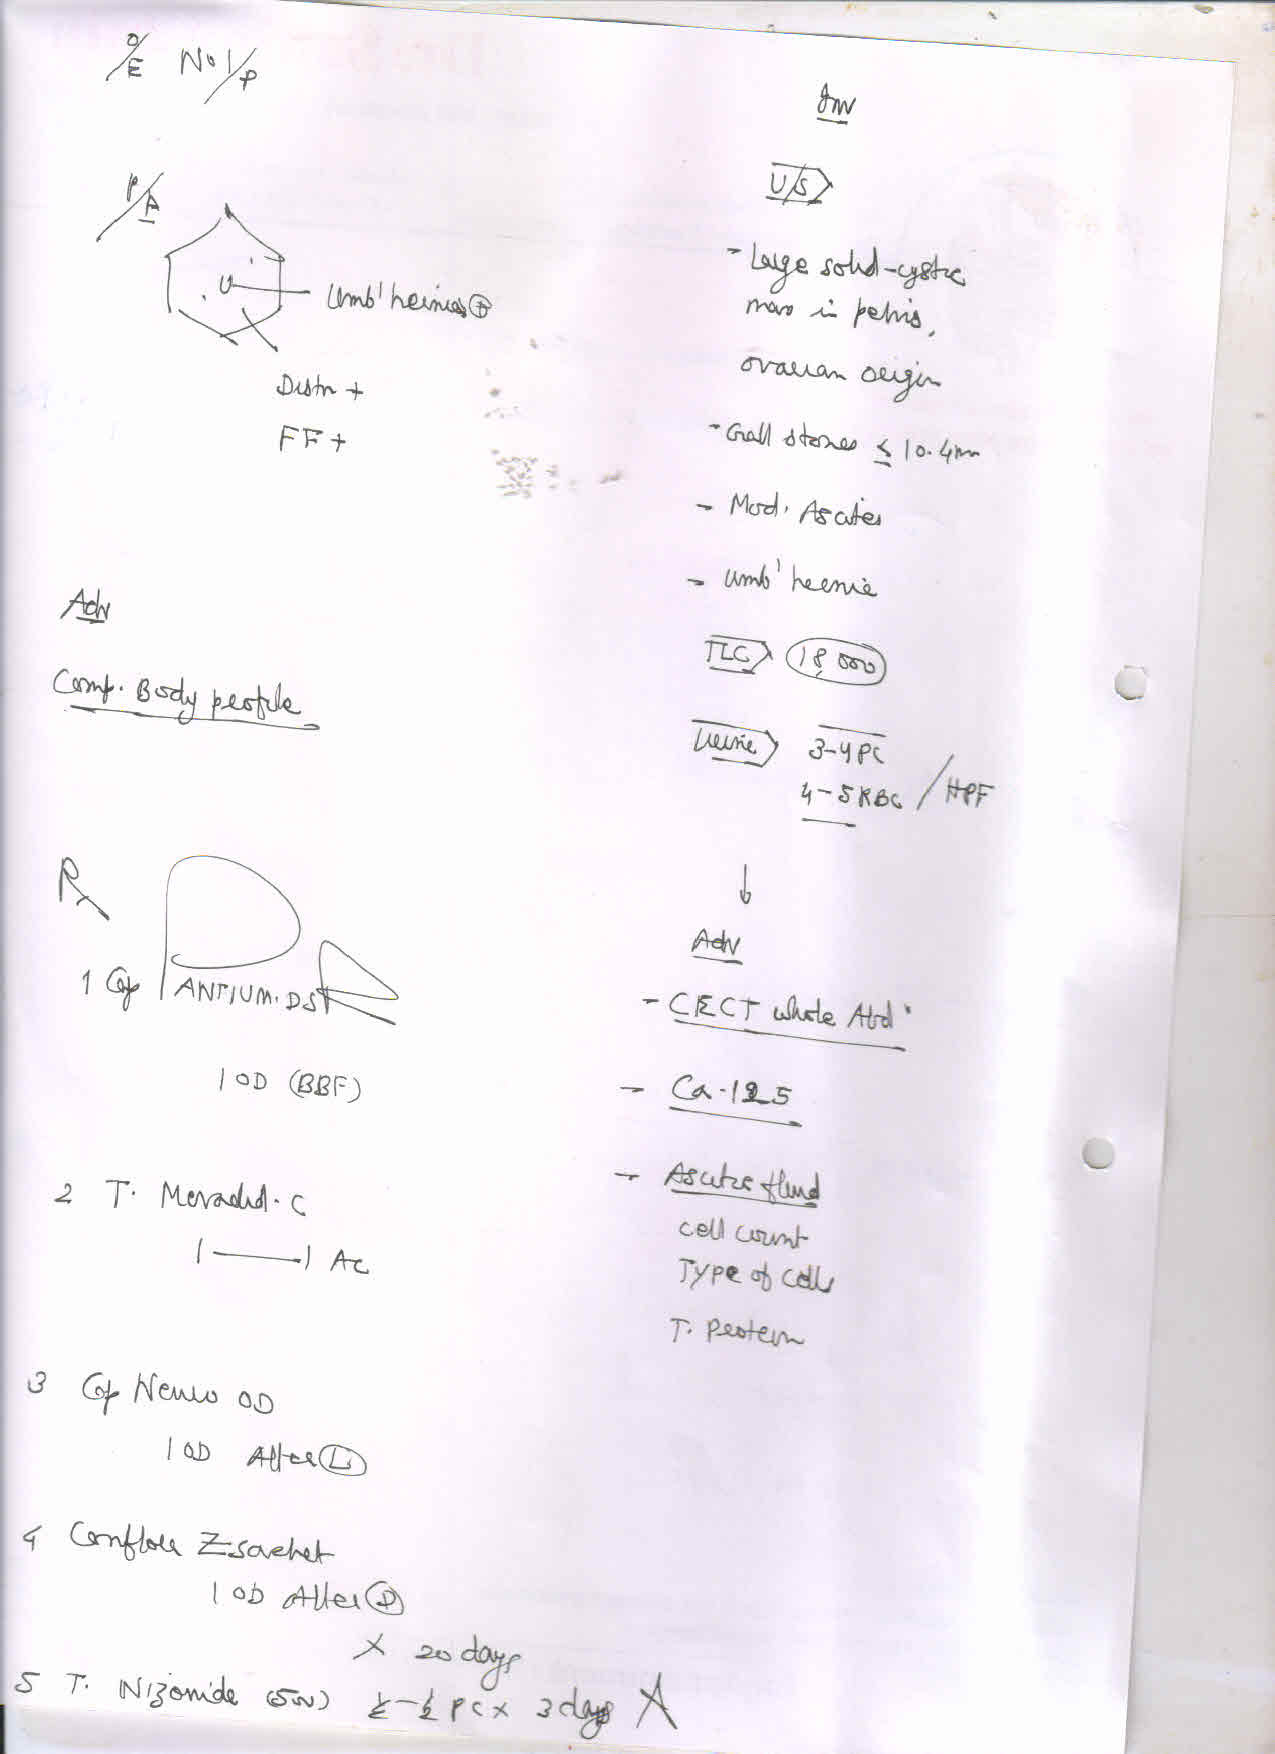 O/E No I/P
P/A
Umb' hernias ⊕
Distn +
FF +
Adv
Comp. Body profile
Rx
1 Cap PANTIUM-DSR
1 OD (BBF)
2 T. C
1——1 AC
3 Cap OD
1 OD After Ⓛ
4 Z sachet
1 OD After Ⓓ
x 20 days
5 T. Nizonide (500) ½-½ PC x 3 days
Inv
U/S
- Large solid-cystic
mass in pelvis,
ovarian origin
- Gall stones ≤ 10.4mm
- Mod. Ascites
- Umb' hernia
TLC 18,000
Urine 3-4 PC
4-5 RBC / HPF
↓
Adv
- CECT whole Abd'
- Ca-125
- Ascitic fluid
cell count
Type of cells
T. Protein